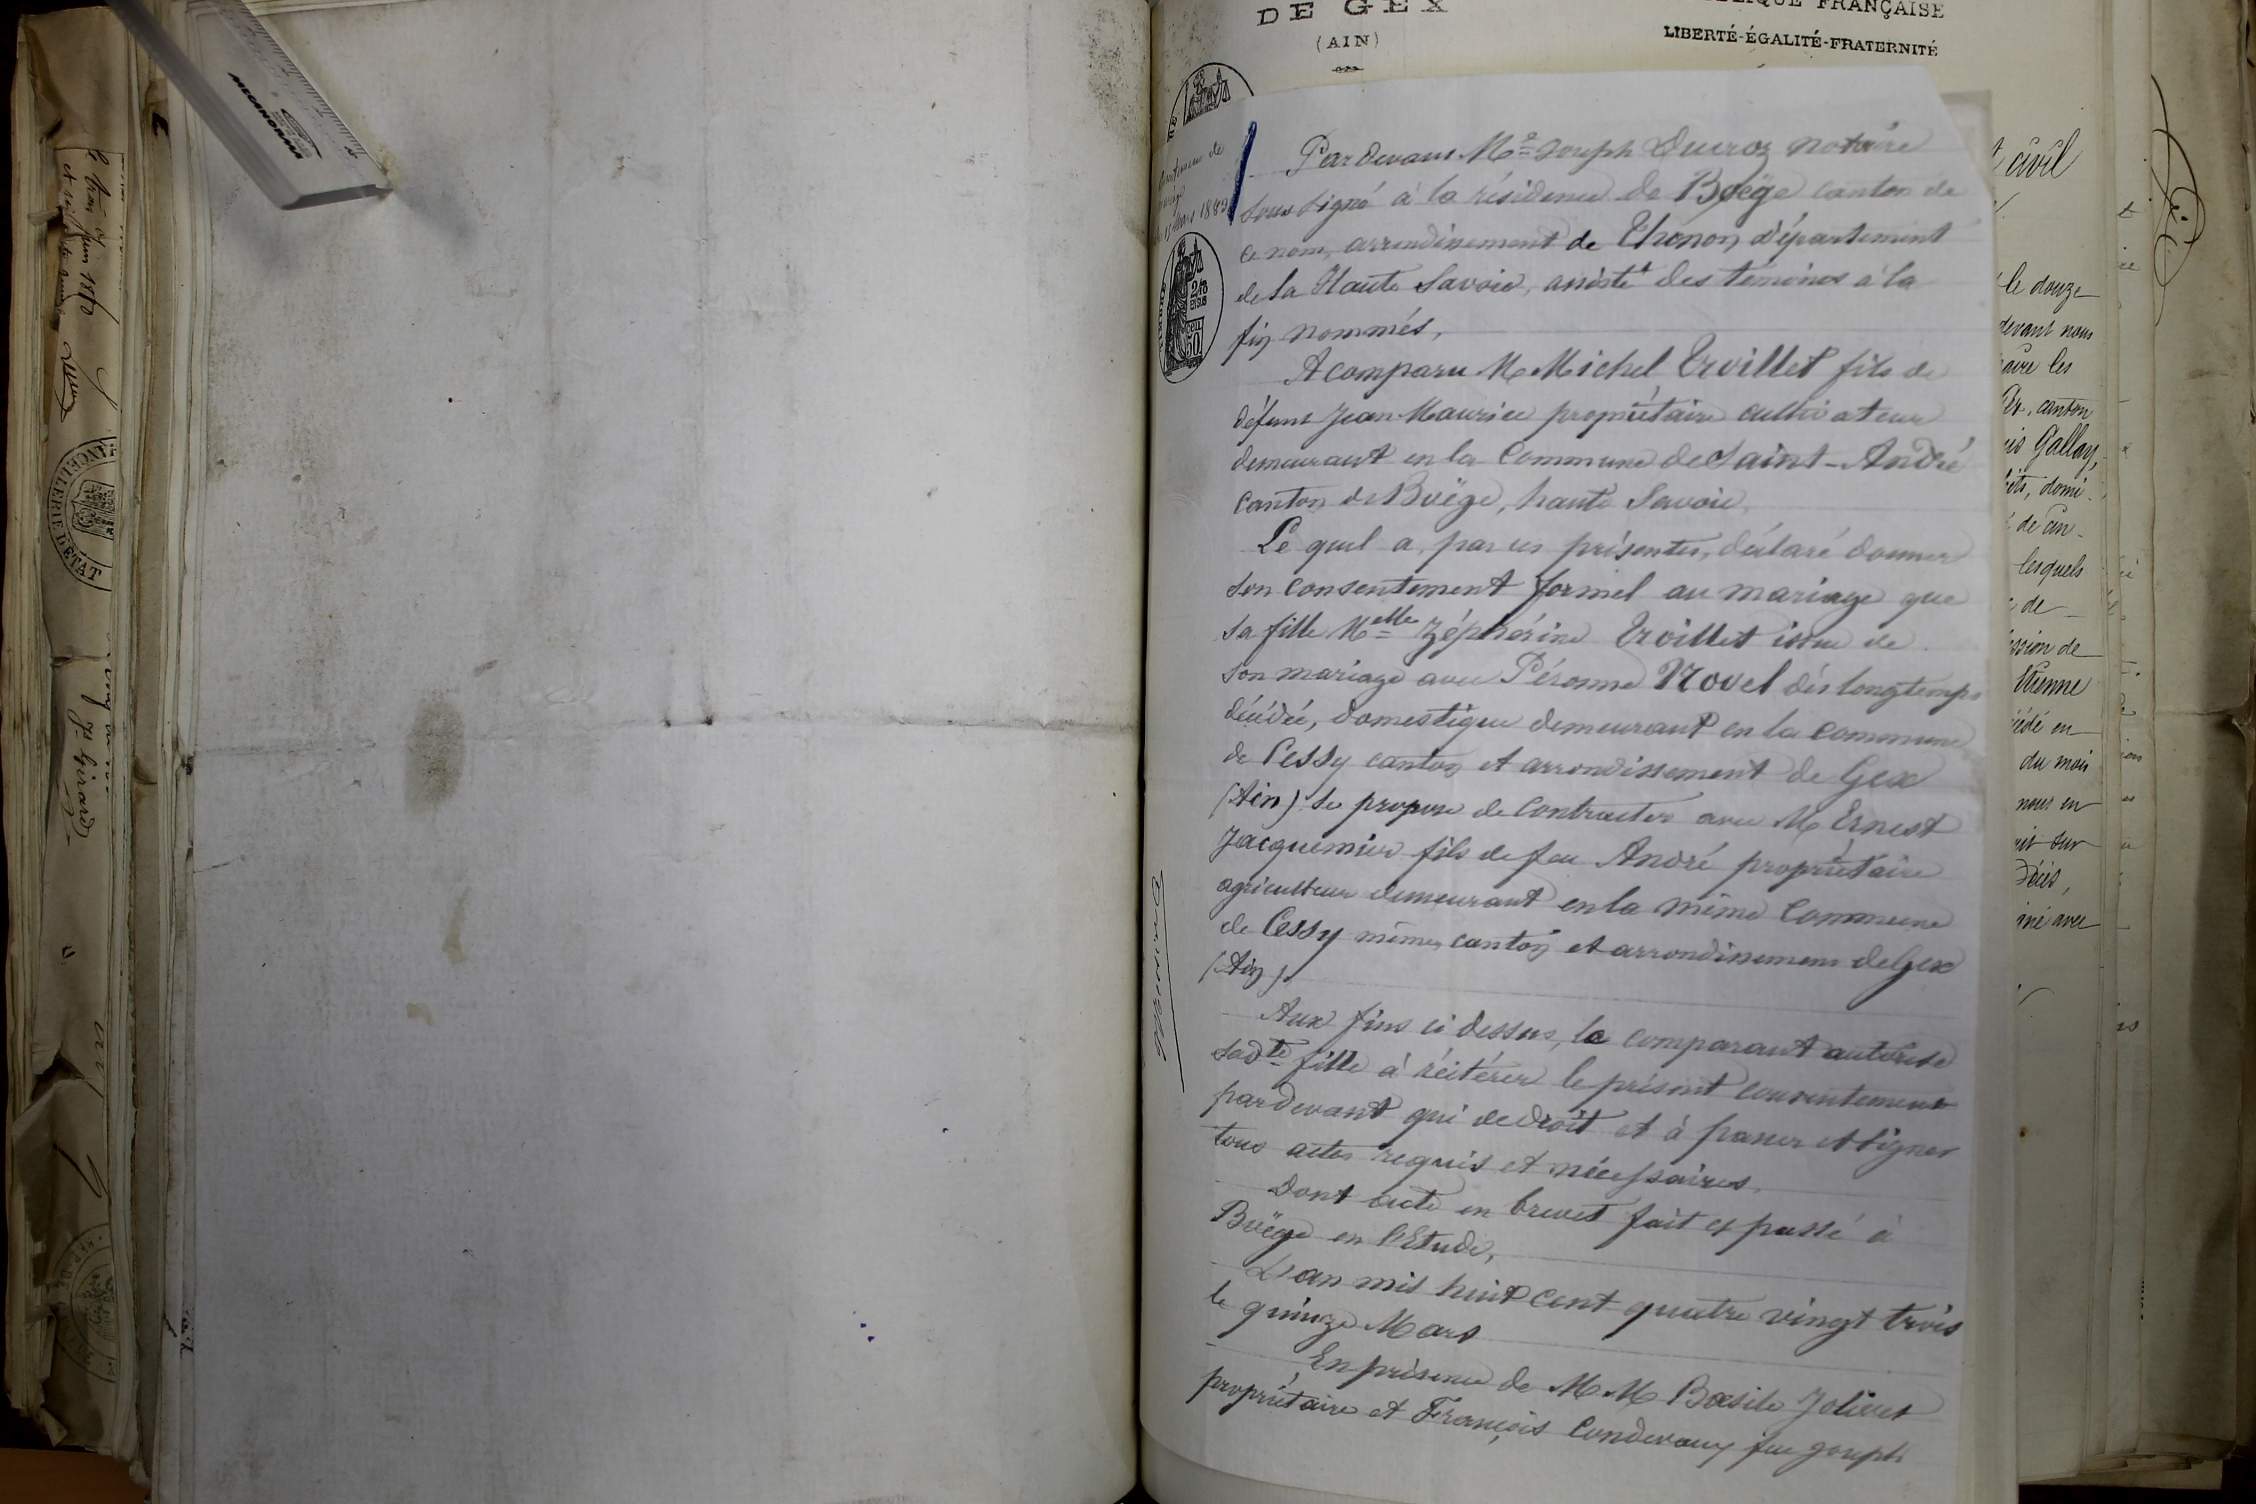 MECANORMA
le trois juin 1880
CHANCELLERIE L'ÉTAT
DE GEX
(AIN)
FRANÇAISE
LIBERTÉ-ÉGALITÉ-FRATERNITÉ
Consentement de
mariage
15 Mars 1883
Par devant Me Joseph Ducroz notaire
soussigné à la résidence de Boëge canton de
ce nom, arrondissement de Thonon département
de la Haute Savoie, assisté des témoins à la
fin nommés,
A comparu M Michel Trvillet fils de
défunt Jean Maurice propriétaire cultivateur
demeurant en la Commune de Saint-André
canton de Boëge, haute Savoie,
Le quel a, par ces présentes, déclaré donner
son consentement formel au mariage que
sa fille Melle Zéphérine Troillet issue de
son mariage avec Péronne Novel dès longtemps
décédée, domestique demeurant en la commune
de Cessy canton et arrondissement de Gex
(Ain) se propose de contracter avec M Ernest
Jacquemier fils de feu André propriétaire
agriculteur demeurant en la même Commune
de Cessy même canton et arrondissement de Gex
(Ain).
Aux fins ci dessus, le comparant autorise
sadte fille à réitérer le présent consentement
pardevant qui de droit et à passer et signer
tous actes requis et nécessaires.
Dont acte en brevet fait et passé à
Boëge en l'Etude,
L'an mil huit cent quatre vingt trois
le quinze Mars
En présence de M.M Basile Jolivet
propriétaire et François Condevaux feu Joseph
civil
le douze
devant nous
les
canton
Gallay,
domi-
de un-
lesquels
de
Etienne
en
du mois
nous en
sur
avec